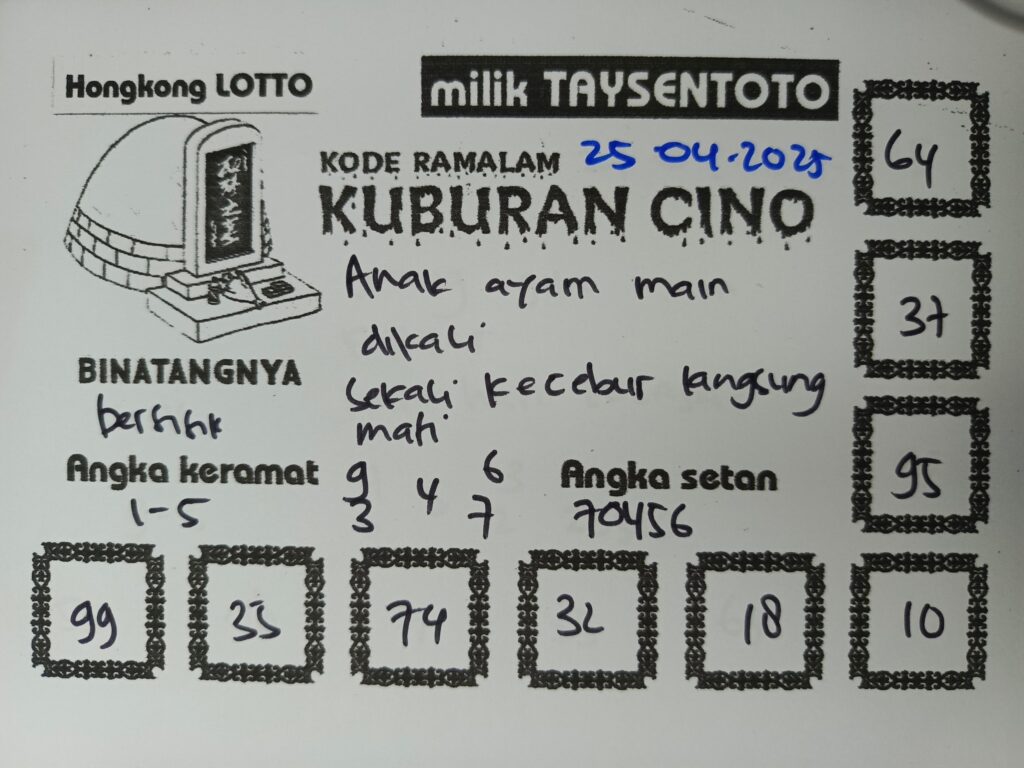 Hongkong LOTTO
milik TAYSENTOTO
KODE RAMALAM 25 04.2025
KUBURAN CINO
Anak ayam main
dikali
sekali kecebur langsung
mati
BINATANGNYA
bersisik
Angka keramat
1-5
9 6
4
3 7
Angka setan
70456
64
37
95
99 33 74 32 18 10